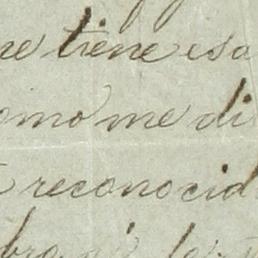 ne tiene esa
omo me di
reconocid